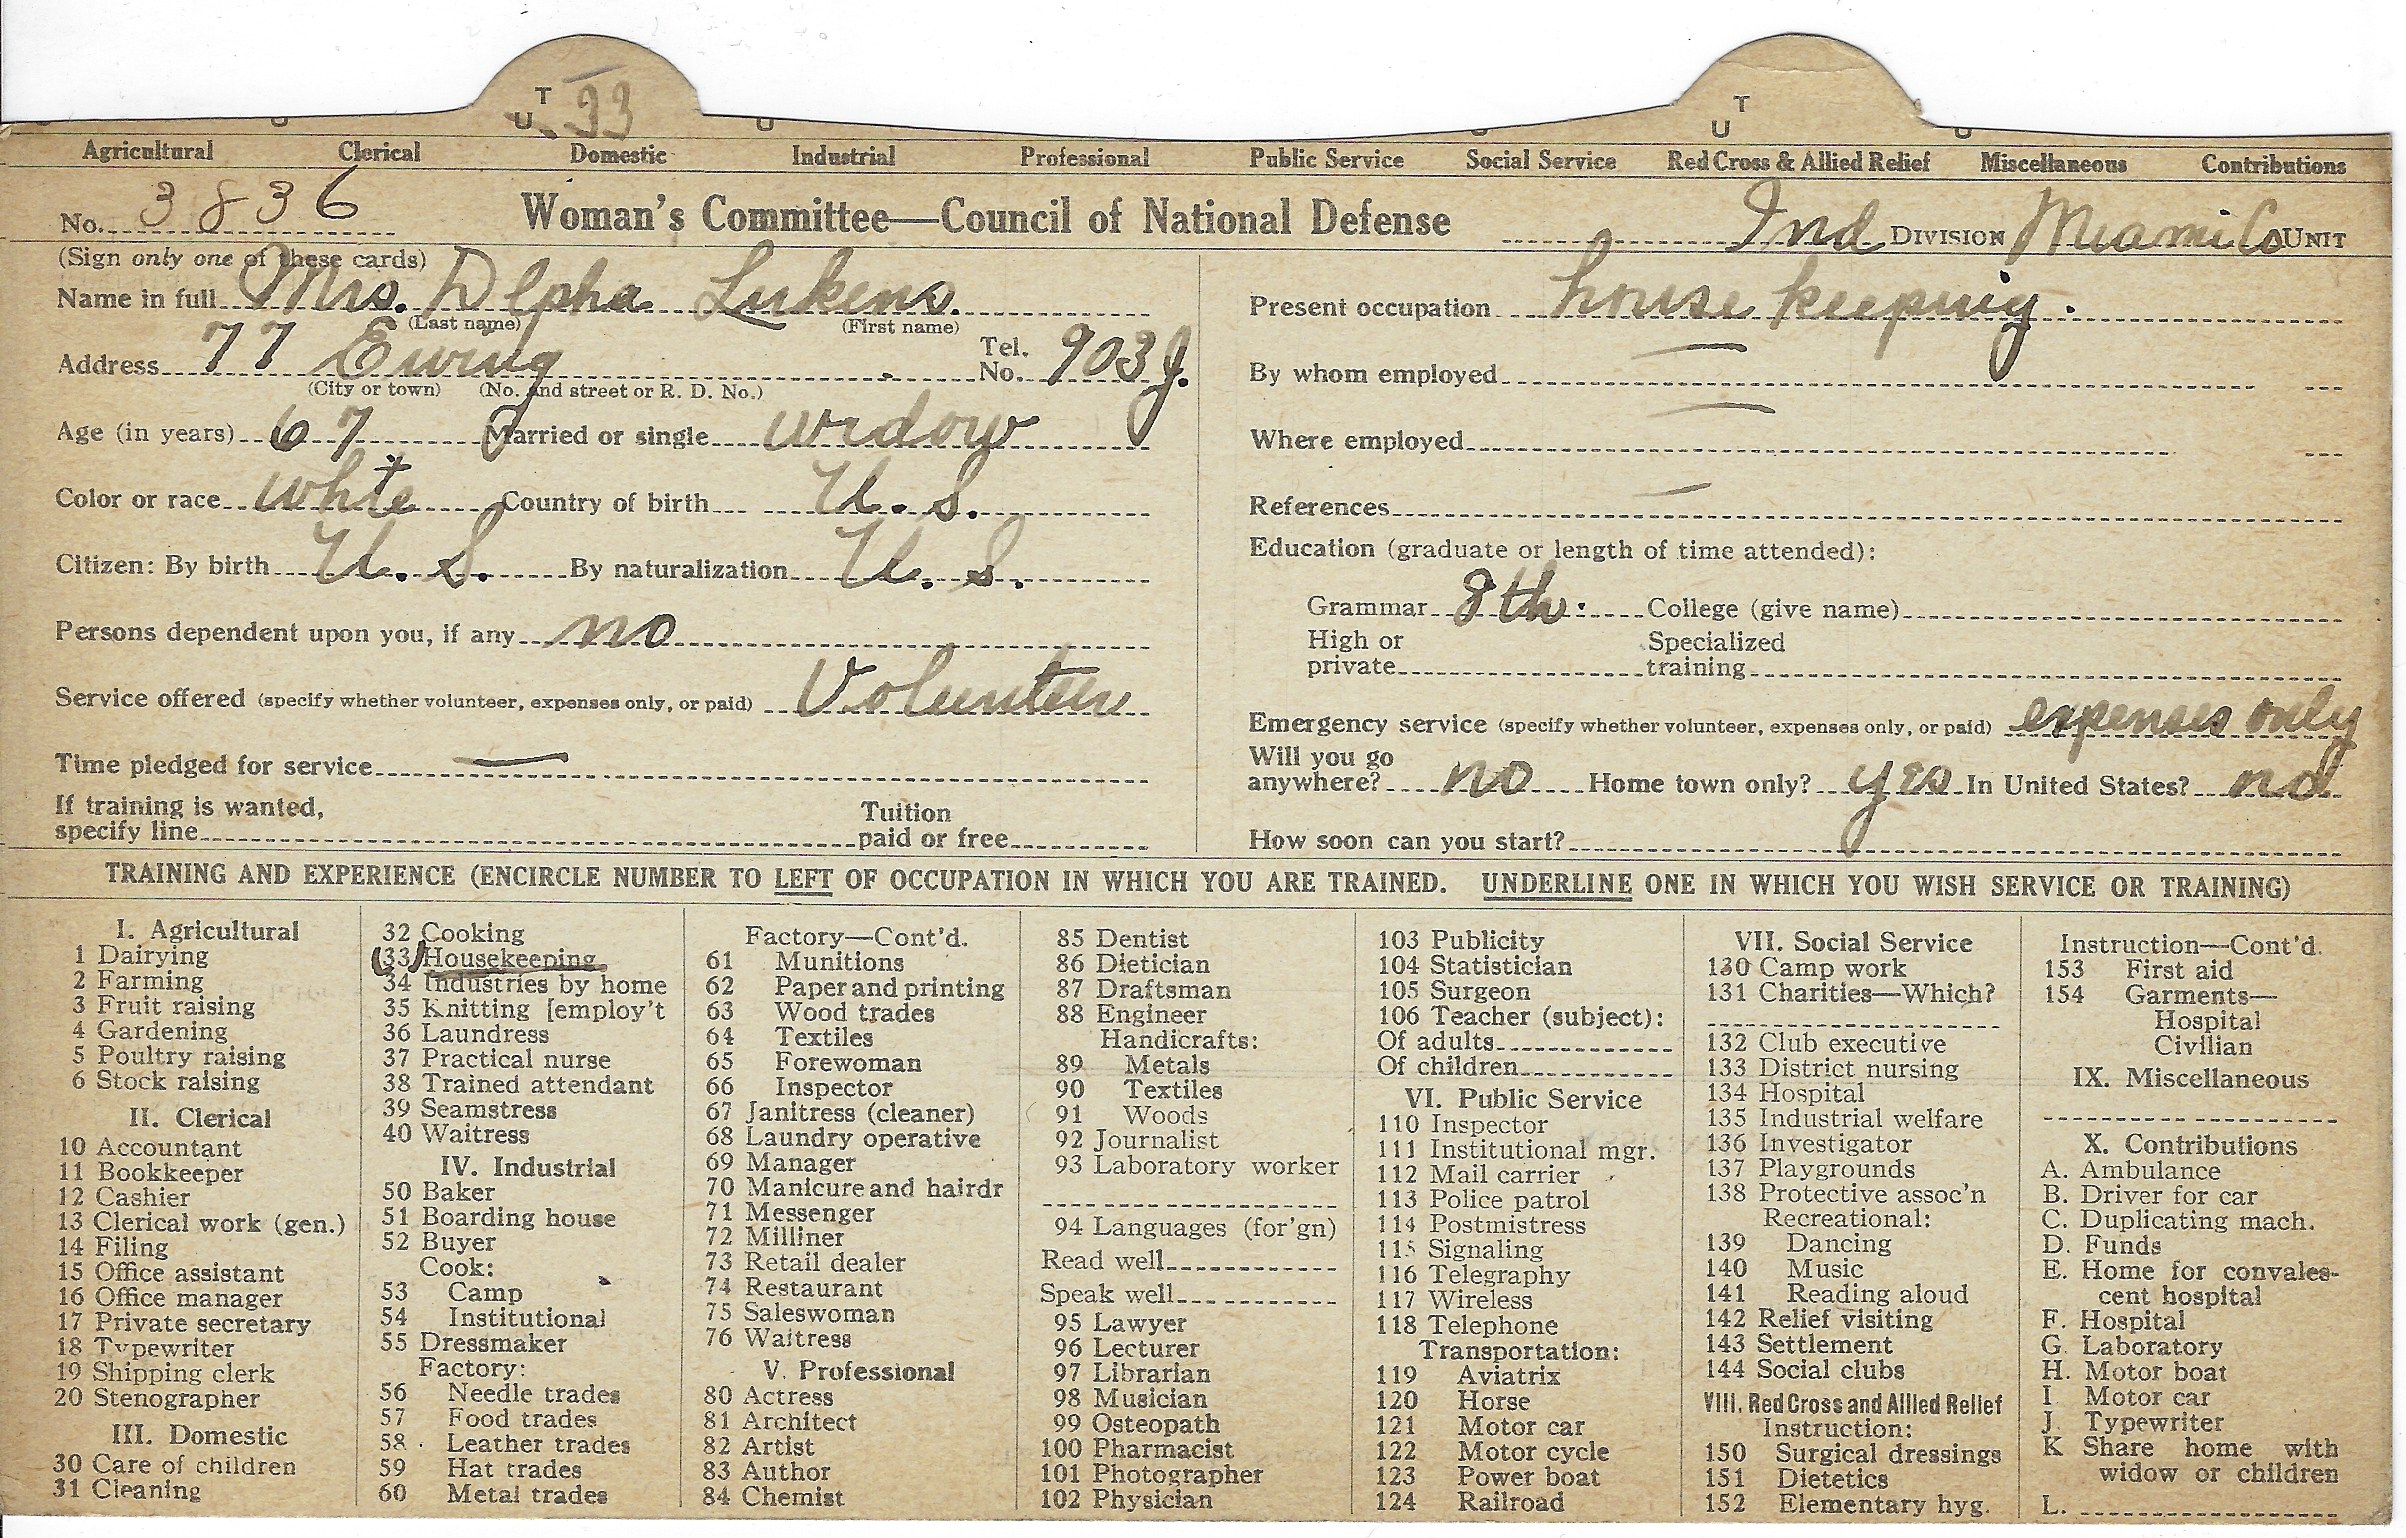 T T
U 33 U
Agricultural Clerical Domestic Industrial Professional Public Service Social Service Red Cross & Allied Relief Miscellaneous Contributions
No. 3836 Woman's Committee—Council of National Defense Ind DIVISION Miami Co UNIT
(Sign only one of these cards)
Name in full Mrs. Dlpha Lukens.
(Last name) (First name)
Address 77 Ewing Tel. No. 903 J.
(City or town) (No. and street or R. D. No.)
Age (in years) 67 Married or single widow
Color or race white Country of birth U. S.
Citizen: By birth U. S. By naturalization U. S.
Persons dependent upon you, if any no
Service offered (specify whether volunteer, expenses only, or paid) Volunteer
Time pledged for service —
If training is wanted,
specify line Tuition paid or free
Present occupation house keeping.
By whom employed —
Where employed —
References —
Education (graduate or length of time attended):
Grammar 8th. College (give name)
High or private Specialized training
Emergency service (specify whether volunteer, expenses only, or paid) expenses only
Will you go anywhere? no Home town only? yes In United States? no
How soon can you start?
TRAINING AND EXPERIENCE (ENCIRCLE NUMBER TO LEFT OF OCCUPATION IN WHICH YOU ARE TRAINED. UNDERLINE ONE IN WHICH YOU WISH SERVICE OR TRAINING)
I. Agricultural
1 Dairying
2 Farming
3 Fruit raising
4 Gardening
5 Poultry raising
6 Stock raising
II. Clerical
10 Accountant
11 Bookkeeper
12 Cashier
13 Clerical work (gen.)
14 Filing
15 Office assistant
16 Office manager
17 Private secretary
18 Typewriter
19 Shipping clerk
20 Stenographer
III. Domestic
30 Care of children
31 Cleaning
32 Cooking
33 Housekeeping
34 Industries by home
35 Knitting [employ't
36 Laundress
37 Practical nurse
38 Trained attendant
39 Seamstress
40 Waitress
IV. Industrial
50 Baker
51 Boarding house
52 Buyer
Cook:
53 Camp
54 Institutional
55 Dressmaker
Factory:
56 Needle trades
57 Food trades
58 Leather trades
59 Hat trades
60 Metal trades
Factory—Cont'd.
61 Munitions
62 Paper and printing
63 Wood trades
64 Textiles
65 Forewoman
66 Inspector
67 Janitress (cleaner)
68 Laundry operative
69 Manager
70 Manicure and hairdr
71 Messenger
72 Milliner
73 Retail dealer
74 Restaurant
75 Saleswoman
76 Waitress
V. Professional
80 Actress
81 Architect
82 Artist
83 Author
84 Chemist
85 Dentist
86 Dietician
87 Draftsman
88 Engineer
Handicrafts:
89 Metals
90 Textiles
91 Woods
92 Journalist
93 Laboratory worker
94 Languages (for'gn)
Read well
Speak well
95 Lawyer
96 Lecturer
97 Librarian
98 Musician
99 Osteopath
100 Pharmacist
101 Photographer
102 Physician
103 Publicity
104 Statistician
105 Surgeon
106 Teacher (subject):
Of adults
Of children
VI. Public Service
110 Inspector
111 Institutional mgr.
112 Mail carrier
113 Police patrol
114 Postmistress
115 Signaling
116 Telegraphy
117 Wireless
118 Telephone
Transportation:
119 Aviatrix
120 Horse
121 Motor car
122 Motor cycle
123 Power boat
124 Railroad
VII. Social Service
130 Camp work
131 Charities—Which?
132 Club executive
133 District nursing
134 Hospital
135 Industrial welfare
136 Investigator
137 Playgrounds
138 Protective assoc'n
Recreational:
139 Dancing
140 Music
141 Reading aloud
142 Relief visiting
143 Settlement
144 Social clubs
VIII. Red Cross and Allied Relief
Instruction:
150 Surgical dressings
151 Dietetics
152 Elementary hyg.
Instruction—Cont'd.
153 First aid
154 Garments—
Hospital
Civilian
IX. Miscellaneous
X. Contributions
A. Ambulance
B. Driver for car
C. Duplicating mach.
D. Funds
E. Home for convales-
cent hospital
F. Hospital
G. Laboratory
H. Motor boat
I Motor car
J. Typewriter
K Share home with
widow or children
L.